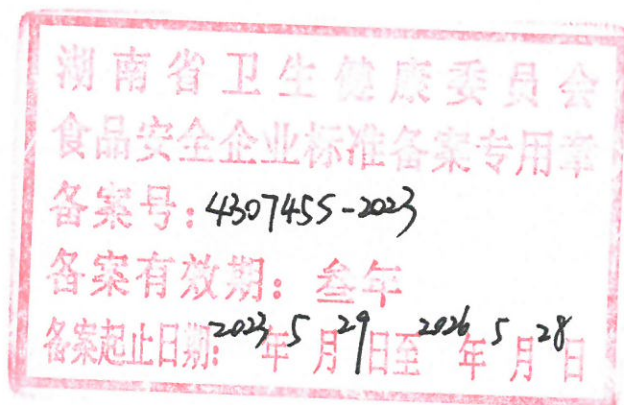 湖南省卫生健康委员会
食品安全企业标准备案专用章
备案号：430745S-2023
备案有效期：叁年
备案起止日期：2023年5月29日至2026年5月28日